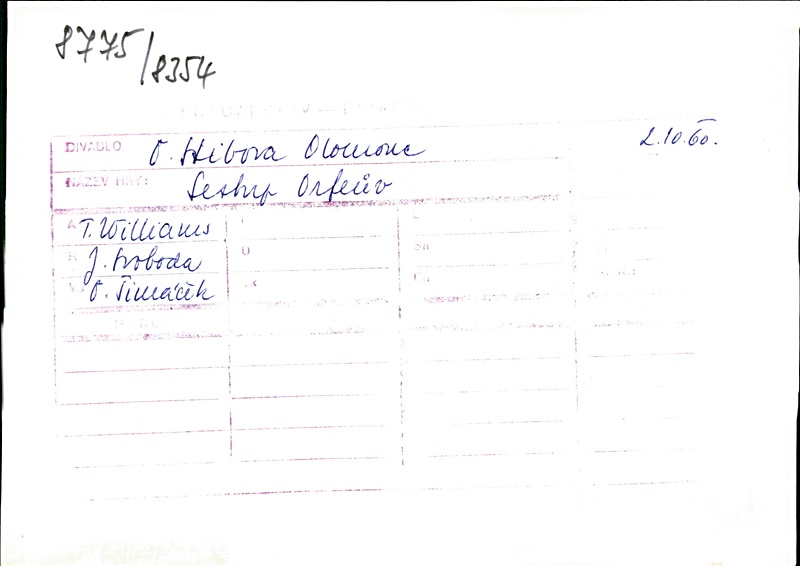 8775/8354
DIVADLO O. Stibora Olomouc 2.10.60.
NÁZEV HRY: Sestup Orfeův
A T. Williams
R J. Svoboda O
V O. Šimáček